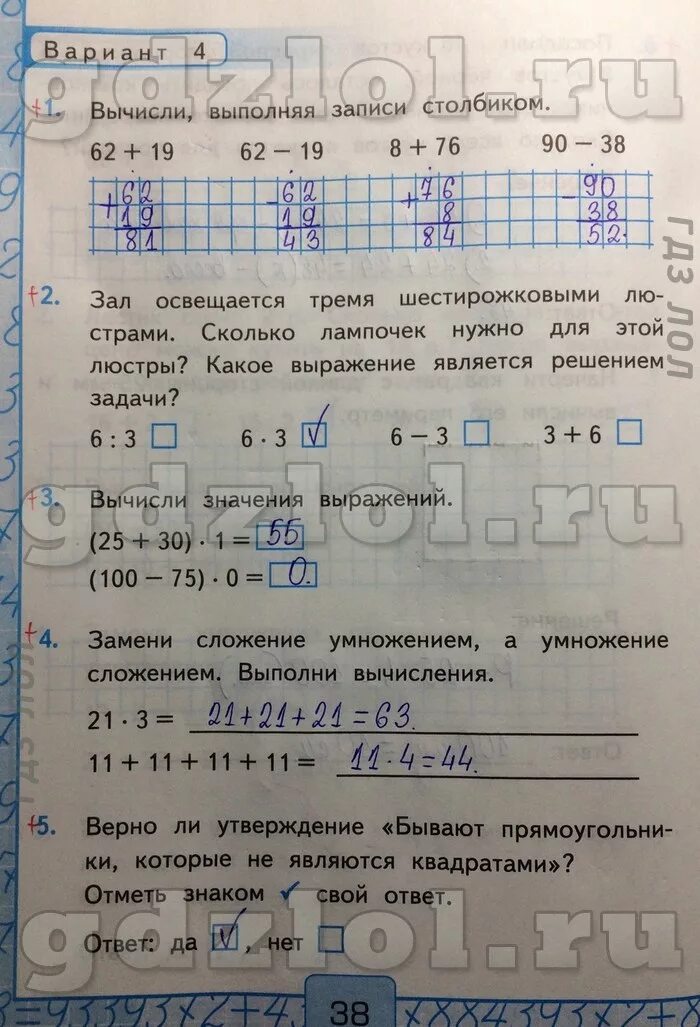 Вариант 4
1. Вычисли, выполняя записи столбиком.
62 + 19 62 − 19 8 + 76 90 − 38
+62 -62 +76 -90
19 19 8 38
81 43 84 52.
2. Зал освещается тремя шестирожковыми лю-
страми. Сколько лампочек нужно для этой
люстры? Какое выражение является решением
задачи?
6 : 3 □ 6 · 3 ☑ 6 − 3 □ 3 + 6 □
3. Вычисли значения выражений.
(25 + 30) · 1 = 55
(100 − 75) · 0 = 0.
4. Замени сложение умножением, а умножение
сложением. Выполни вычисления.
21 · 3 = 21+21+21=63.
11 + 11 + 11 + 11 = 11·4=44.
5. Верно ли утверждение «Бывают прямоугольни-
ки, которые не являются квадратами»?
Отметь знаком ✓ свой ответ.
Ответ: да ☑, нет □
38
gdzlol.ru
gdzlol.ru
gdzlol.ru
gdzlol.ru
ГДЗ ЛОЛ
ГДЗ ЛОЛ